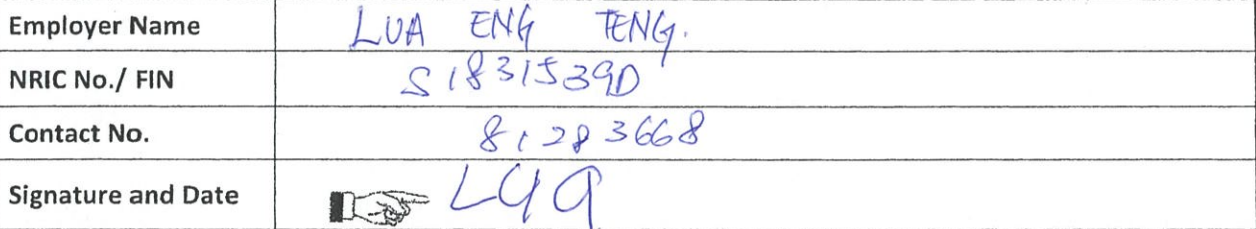 Employer Name LUA ENG TENG.
NRIC No./ FIN S1831539D
Contact No. 81283668
Signature and Date